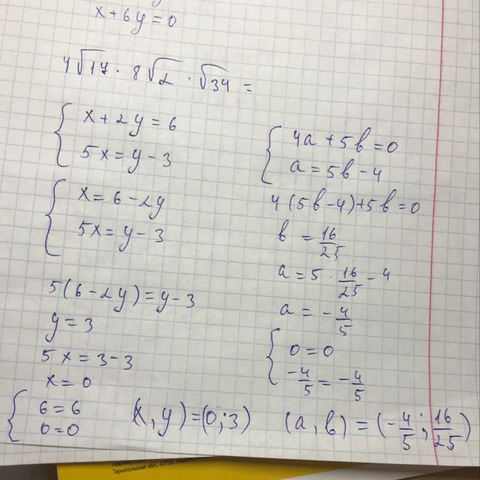 x+6y=0
4√17 · 8√2 · √34 =
{ x+2y=6
5x=y-3
{ x=6-2y
5x=y-3
5(6-2y)=y-3
y=3
5x=3-3
x=0
{ 6=6
0=0
(x,y)=(0;3)
{ 4a+5b=0
a=5b-4
4(5b-4)+5b=0
b=16/25
a=5·16/25-4
a=-4/5
{ 0=0
-4/5=-4/5
(a,b)=(-4/5;16/25)